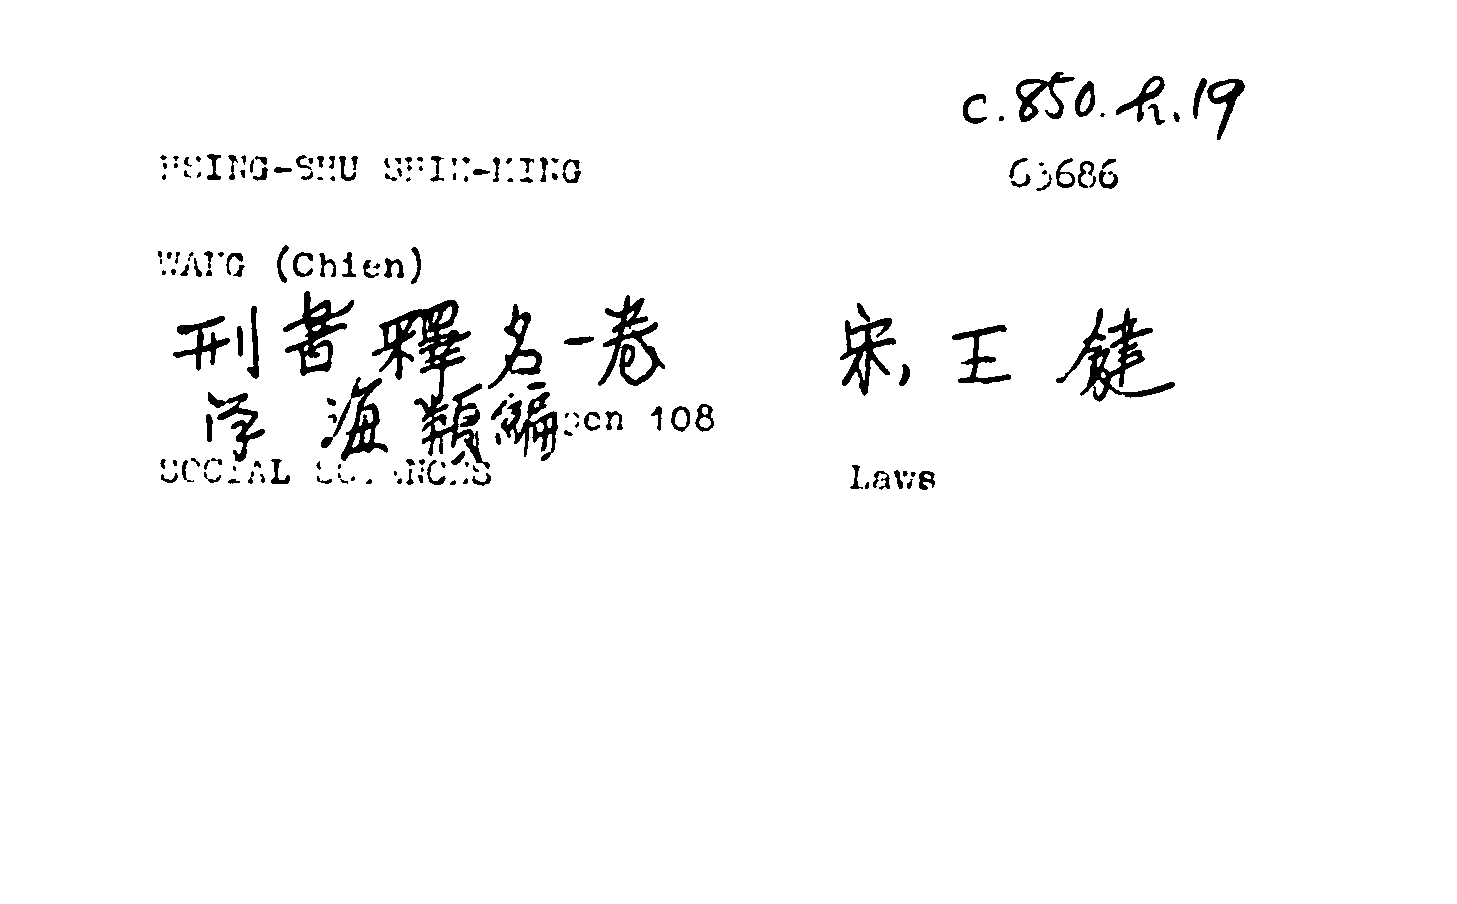 c.850.h.19
HSING-SHU SHIH-MING G3686
WANG (Chien)
刑書釋名一卷 宋, 王鍵
学海類編 pen 108
SOCIAL SCIENCES Laws